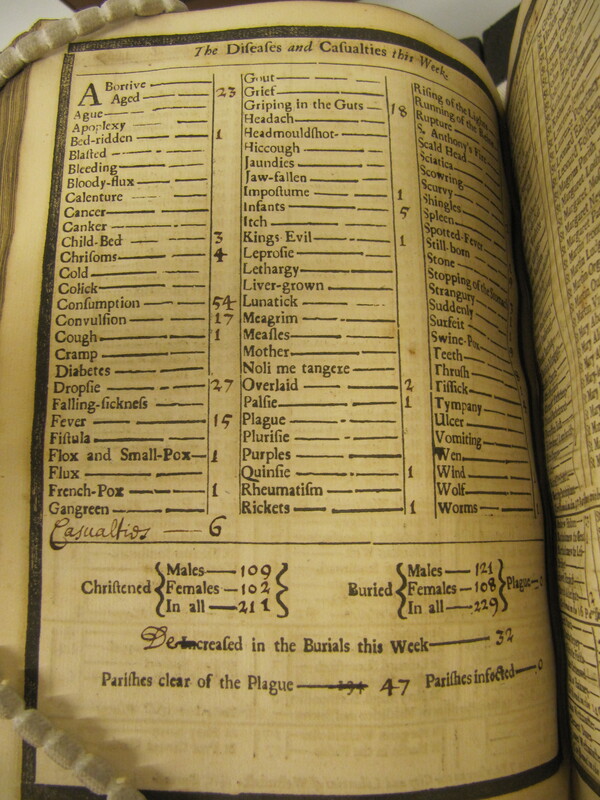 The Diſeaſes and Caſualties this Week.
ABortive
Aged 23
Ague
Apoplexy
Bed-ridden 1
Blaſted
Bleeding
Bloody-flux
Calenture
Cancer
Canker
Child-Bed 3
Chriſoms 4
Cold
Colick
Conſumption 54
Convulſion 17
Cough 1
Cramp
Diabetes
Dropſie 27
Falling-ſickneſs
Fever 15
Fiſtula
Flox and Small-Pox 1
Flux
French-Pox 1
Gangreen
Caſualties 6
Gout
Grief
Griping in the Guts 18
Headach
Headmouldſhot
Hiccough
Jaundies
Jaw-fallen
Impoſtume 1
Infants 5
Itch
Kings Evil 1
Leproſie
Lethargy
Liver-grown
Lunatick
Meagrim
Meaſles
Mother
Noli me tangere
Overlaid 2
Palſie 1
Plague
Pluriſie
Purples
Quinſie 1
Rheumatiſm
Rickets 1
Riſing of the Lights
Running of the
Rupture
S. Anthony's Fire
Scald Head
Sciatica
Scowring
Scurvy
Shingles
Spleen
Spotted-Fever
Still-born
Stone
Stopping of the
Strangury
Suddenly
Surfeit
Swine-Pox
Teeth
Thruſh
Tiſſick
Tympany
Ulcer
Vomiting
Wen
Wind
Wolf
Worms
Chriſtened { Males — 109
Females — 102
In all — 211 }
Buried { Males — 121
Females — 108
In all — 229 } Plague — 0
De Increaſed in the Burials this Week — 32
Pariſhes clear of the Plague — 47 Pariſhes infected — 0